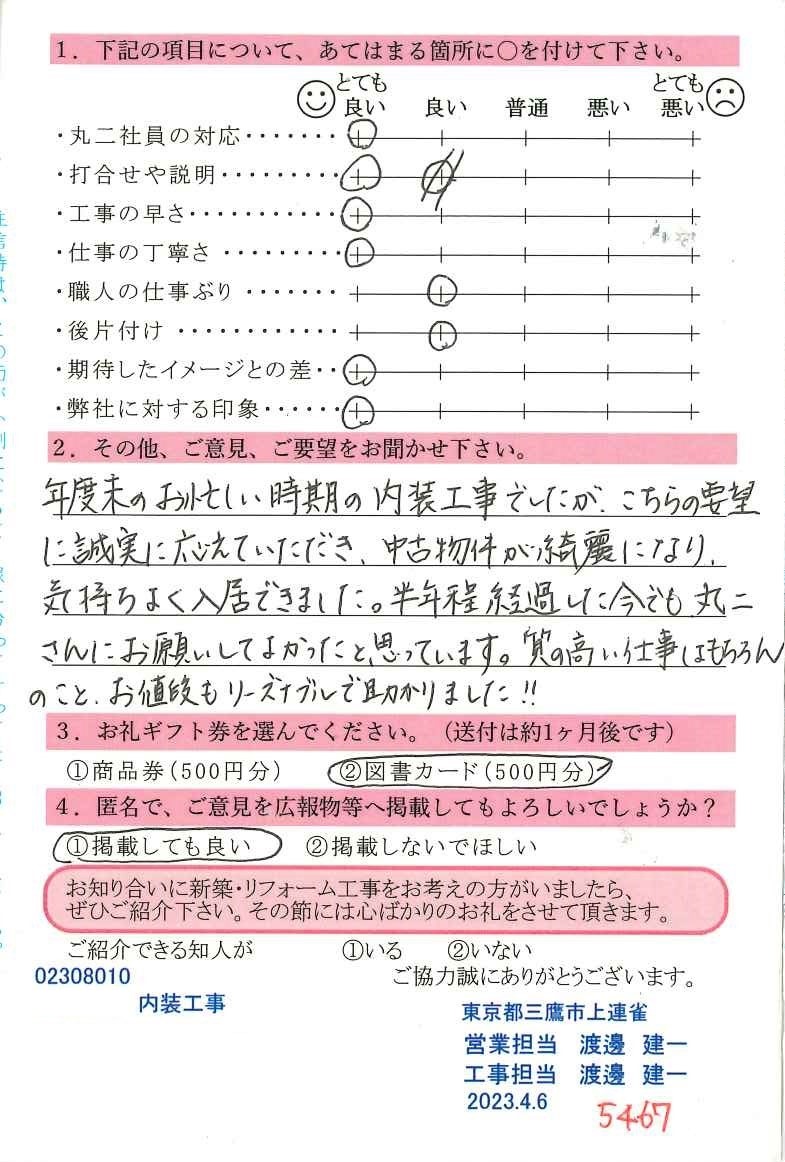 1．下記の項目について、あてはまる箇所に○を付けて下さい。
とても良い 良い 普通 悪い とても悪い
・丸二社員の対応・・・・・・・
・打合せや説明・・・・・・・・・
・工事の早さ・・・・・・・・・・・
・仕事の丁寧さ・・・・・・・・・
・職人の仕事ぶり・・・・・・・
・後片付け・・・・・・・・・・・・
・期待したイメージとの差・・
・弊社に対する印象・・・・・・
2．その他、ご意見、ご要望をお聞かせ下さい。
年度末のお忙しい時期の内装工事でしたが、こちらの要望
に誠実に応えていただき、中古物件が綺麗になり、
気持ちよく入居できました。半年程経過した今でも丸二
さんにお願いしてよかったと思っています。質の高い仕事はもちろん
のこと、お値段もリーズナブルで助かりました!!
3．お礼ギフト券を選んでください。（送付は約1ヶ月後です）
①商品券(500円分) ②図書カード(500円分)
4．匿名で、ご意見を広報物等へ掲載してもよろしいでしょうか？
①掲載しても良い ②掲載しないでほしい
お知り合いに新築・リフォーム工事をお考えの方がいましたら、
ぜひご紹介下さい。その節には心ばかりのお礼をさせて頂きます。
ご紹介できる知人が ①いる ②いない
02308010
ご協力誠にありがとうございます。
内装工事
東京都三鷹市上連雀
営業担当 渡邊 建一
工事担当 渡邊 建一
2023.4.6
5467